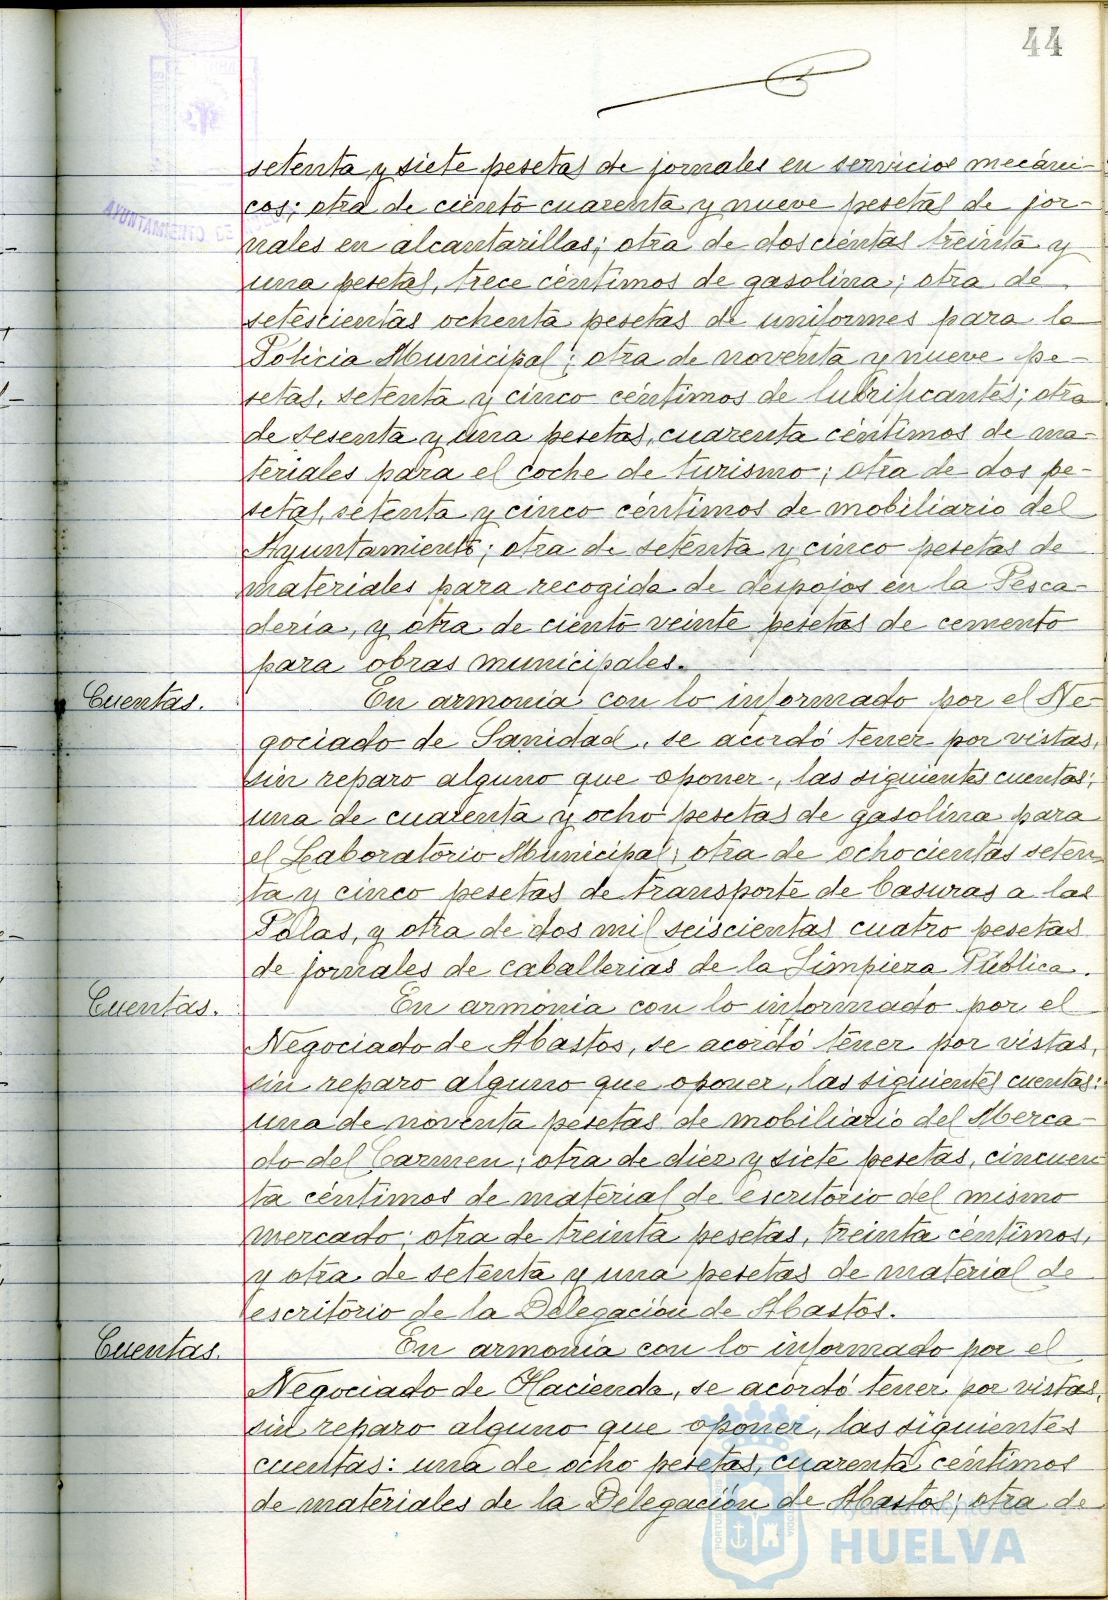 44
setenta y siete pesetas de jornales en servicios mecáni-
cos; otra de ciento cuarenta y nueve pesetas de jor-
nales en alcantarillas; otra de doscientas treinta y
una pesetas, trece céntimos de gasolina; otra de
setescientas ochenta pesetas de uniformes para la
Policia Municipal; otra de noventa y nueve pe-
setas, setenta y cinco céntimos de lubrificantes; otra
de sesenta y una pesetas, cuarenta céntimos de ma-
teriales para el coche de turismo; otra de dos pe-
setas, setenta y cinco céntimos de mobiliario del
Ayuntamiento; otra de setenta y cinco pesetas de
materiales para recogida de despojos en la Pesca-
dería, y otra de ciento veinte pesetas de cemento
para obras municipales.
Cuentas. En armonía con lo informado por el Ne-
gociado de Sanidad, se acordó tener por vistas,
sin reparo alguno que oponer, las siguientes cuentas:
una de cuarenta y ocho pesetas de gasolina para
el Laboratorio Municipal; otra de ochocientas seten-
ta y cinco pesetas de transporte de basuras a las
Polas, y otra de dos mil seiscientas cuatro pesetas
de jornales de caballerías de la Limpieza Pública.
Cuentas. En armonía con lo informado por el
Negociado de Abastos, se acordó tener por vistas,
sin reparo alguno que oponer, las siguientes cuentas:
una de noventa pesetas de mobiliario del Merca-
do del Carmen; otra de diez y siete pesetas, cincuen
ta céntimos de material de escritorio del mismo
mercado; otra de treinta pesetas, treinta céntimos,
y otra de setenta y una pesetas de material de
escritorio de la Delegación de Abastos.
Cuentas. En armonía con lo informado por el
Negociado de Hacienda, se acordó tener por vistas,
sin reparo alguno que oponer, las siguientes
cuentas: una de ocho pesetas, cuarenta céntimos
de materiales de la Delegación de Abastos; otra de
Ayuntamiento de
HUELVA